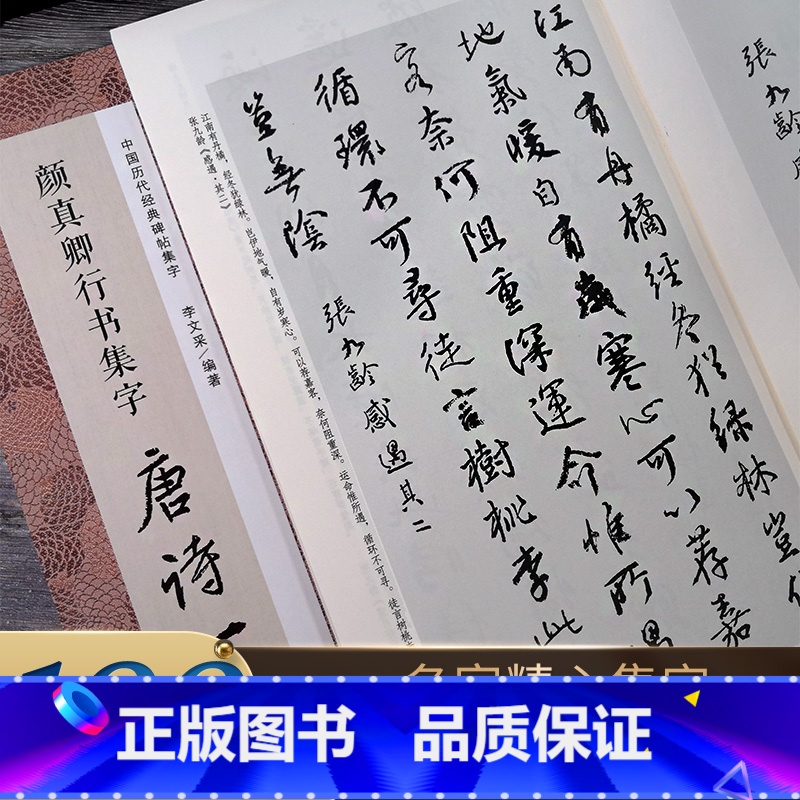 張九齡
江南有丹橘經冬猶綠林豈
地氣暖自有歲寒心可以荐嘉
客奈何阻重深運命惟所遇
循環不可尋徒言樹桃李此
豈無陰
張九齡感遇其二
江南有丹橘，经冬犹绿林。岂伊地气暖，自有岁寒心。可以荐嘉客，奈何阻重深。运命惟所遇，循环不可寻。徒言树桃
张九龄《感遇·其二》
中国历代经典碑帖集字 李文采/编著
颜真卿行书集字
唐诗
正版图书 品质保证